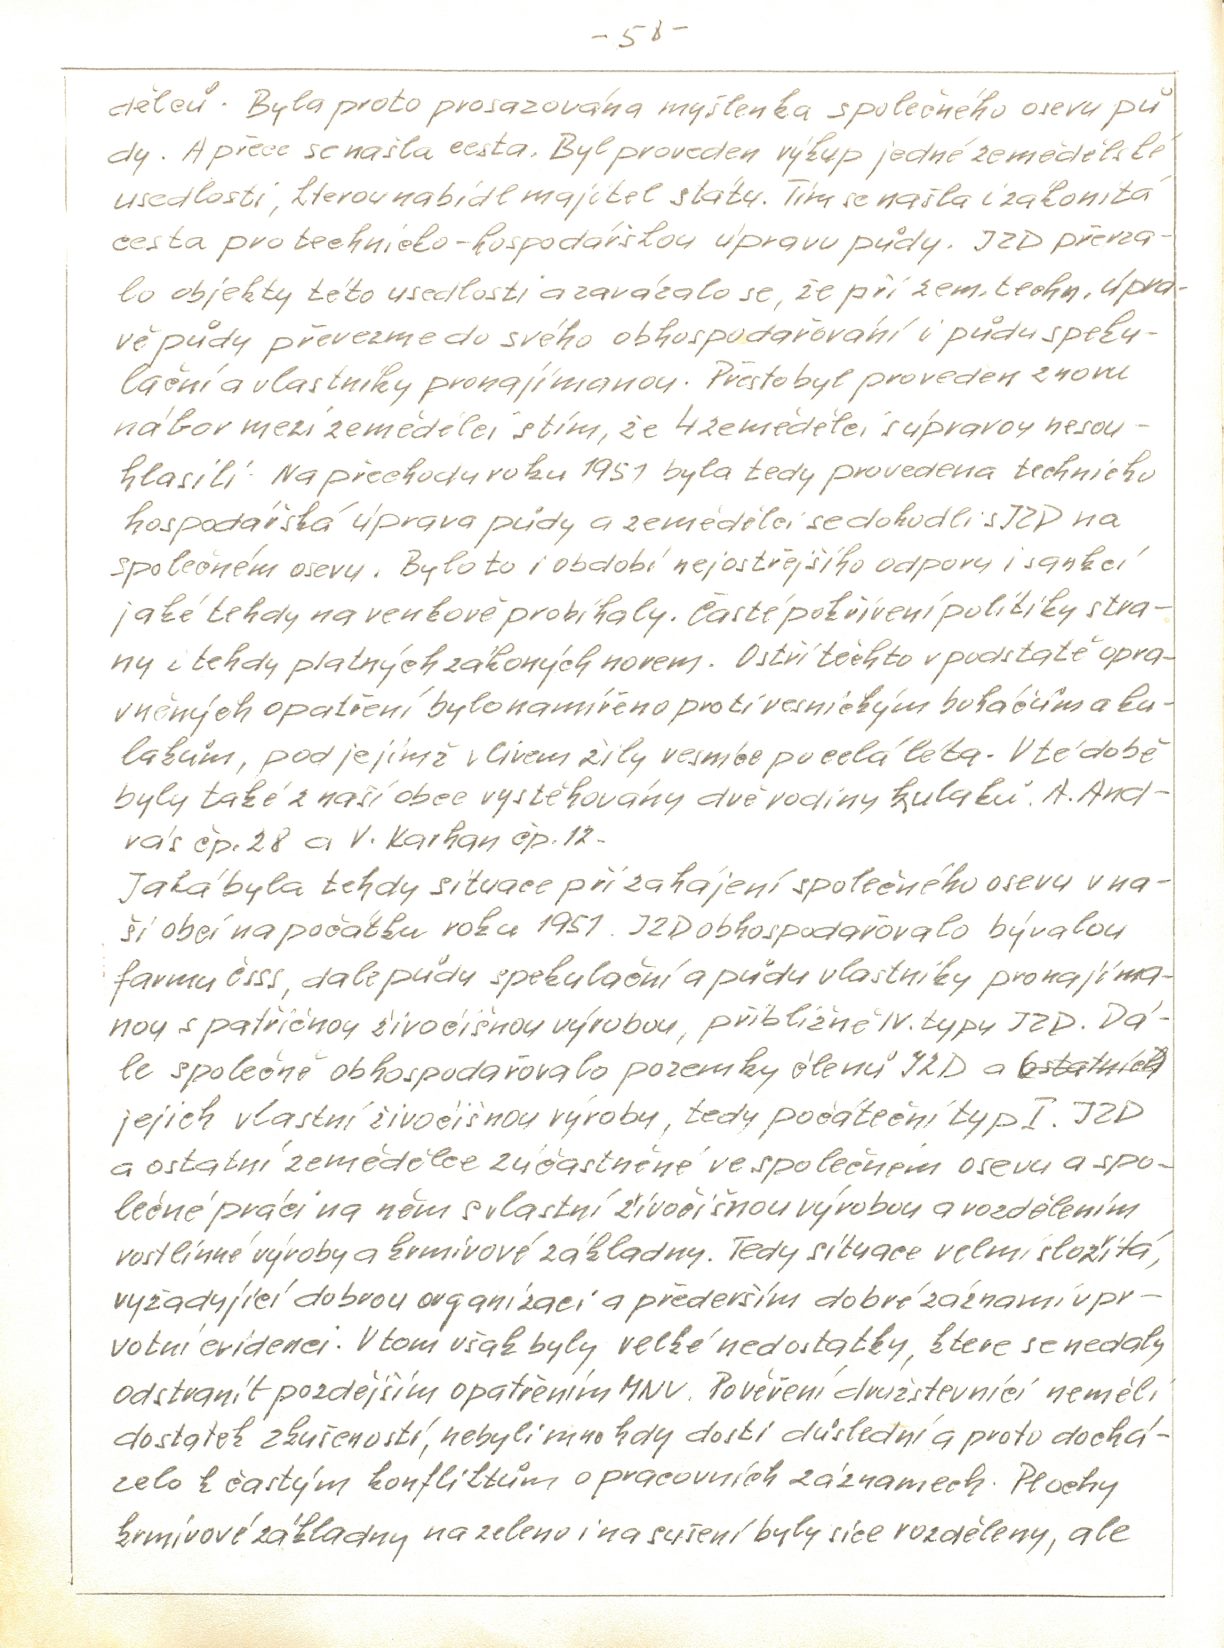 - 58 -
dělců. Byla proto prosazována myšlenka společného osevu pů
dy. A přece se našla cesta. Byl proveden výkup jedné zemědělské
usedlosti, kterou nabídl majitel státu. Tím se našla i zákonitá
cesta pro technicko-hospodářskou úpravu půdy. JZD převza-
lo objekty této usedlosti a zavázalo se, že při zem. techn. úpra-
vě půdy převezme do svého obhospodařování i půdu speku-
lační a vlastníky pronajímanou. Přesto byl proveden znovu
nábor mezi zemědělci s tím, že 4 zemědělci s úpravou nesou-
hlasili. Na přechodu roku 1951 byla tedy provedena technicko
hospodářská úprava půdy a zemědělci se dohodli s JZD na
společném osevu. Bylo to i období nejostřejšího odporu i sankcí
jaké tehdy na venkově probíhaly. Časté pokřivení politiky stra-
ny i tehdy platných zákoných norem. Ostří těchto v podstatě opra-
vněných opatření bylo namířeno proti vesnickým boháčům a ku-
lakům, pod jejímž vlivem žily vesnice po celá léta. V té době
byly také z naší obce vystěhovány dvě rodiny kulaků. A. And-
rás čp. 28 a V. Karhan čp. 12.
Jaká byla tehdy situace při zahájení společného osevu v na-
ší obci na počátku roku 1951. JZD obhospodařovalo bývalou
farmu čsss, dále půdu spekulační a půdu vlastníky pronajíma-
nou s patřičnou živočišnou výrobou, přibližně IV. typu JZD. Dá-
le společně obhospodařovalo pozemky členů JZD a ostatních
jejich vlastní živočišnou výrobu, tedy počáteční typ I. JZD
a ostatní zemědělce zúčastněné ve společném osevu a spo-
lečné práci na něm s vlastní živočišnou výrobou a rozdělením
rostlinné výroby a krmivové základny. Tedy situace velmi složitá,
vyžadující dobrou organizaci a především dobré záznami v pr-
votní evidenci. V tom však byly velké nedostatky, ktere se nedaly
odstranit pozdějším opatřením MNV. Pověření družstevníci neměli
dostatek zkušeností, nebyli mnohdy dosti důslední a proto dochá-
zelo k častým konfliktům o pracovních záznamech. Plochy
krmivové základny na zeleno i na sušení byly sice rozděleny, ale